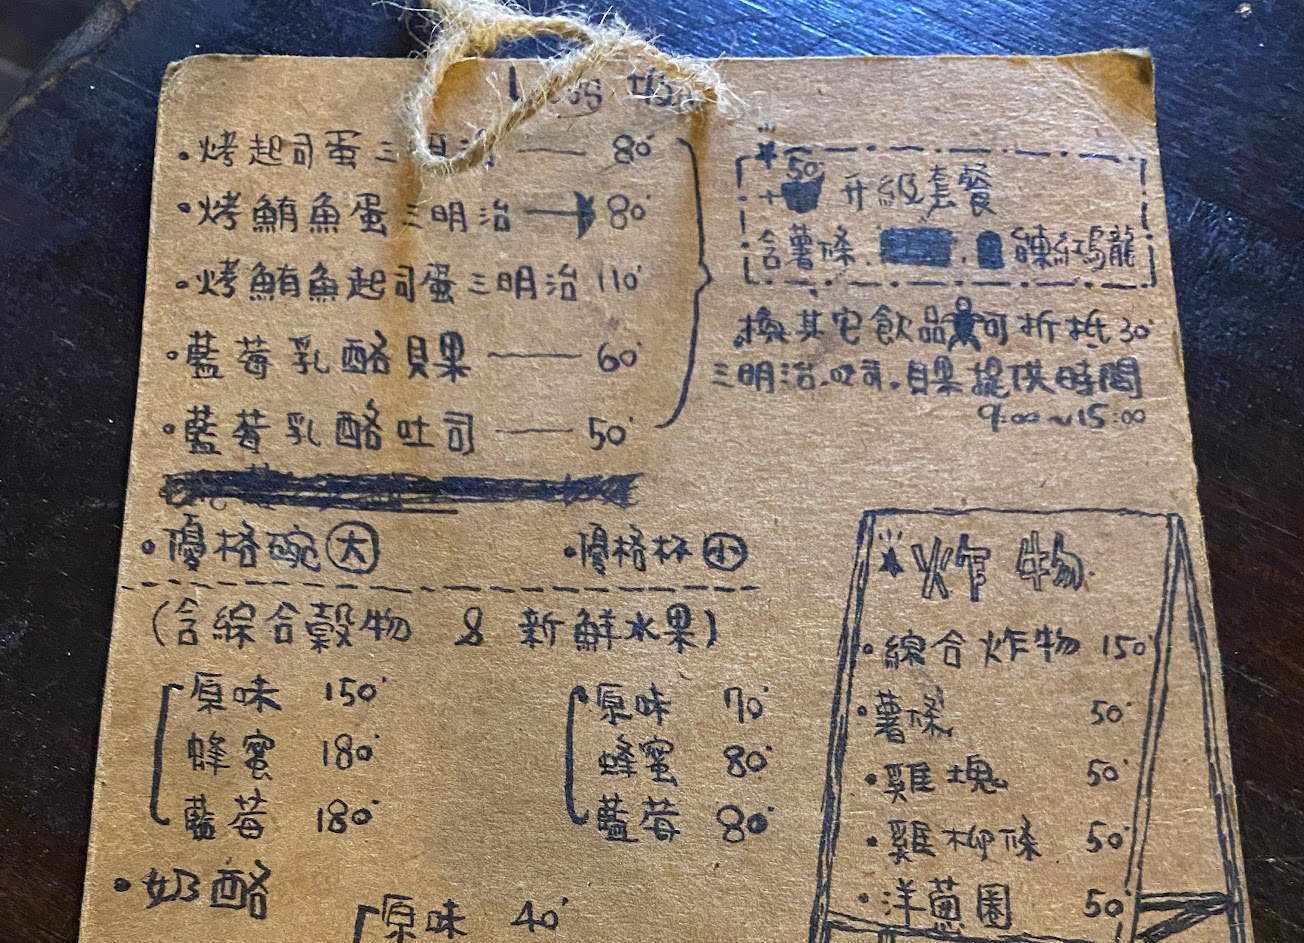 烤起司蛋三明治 —— 80
烤鮪魚蛋三明治 —— 80
烤鮪魚起司蛋三明治 110
藍莓乳酪貝果 —— 60
藍莓乳酪吐司 —— 50
+50 升級套餐
含薯條. . 錬紅烏龍
換其它飲品可折抵30
三明治.吐司.貝果提供時間
9:00~15:00
優格碗大
優格杯小
(含綜合穀物 & 新鮮水果)
原味 150
蜂蜜 180
藍莓 180
原味 70
蜂蜜 80
藍莓 80
奶酪
原味 40
炸物
綜合炸物 150
薯條 50
雞塊 50
雞柳條 50
洋蔥圈 50